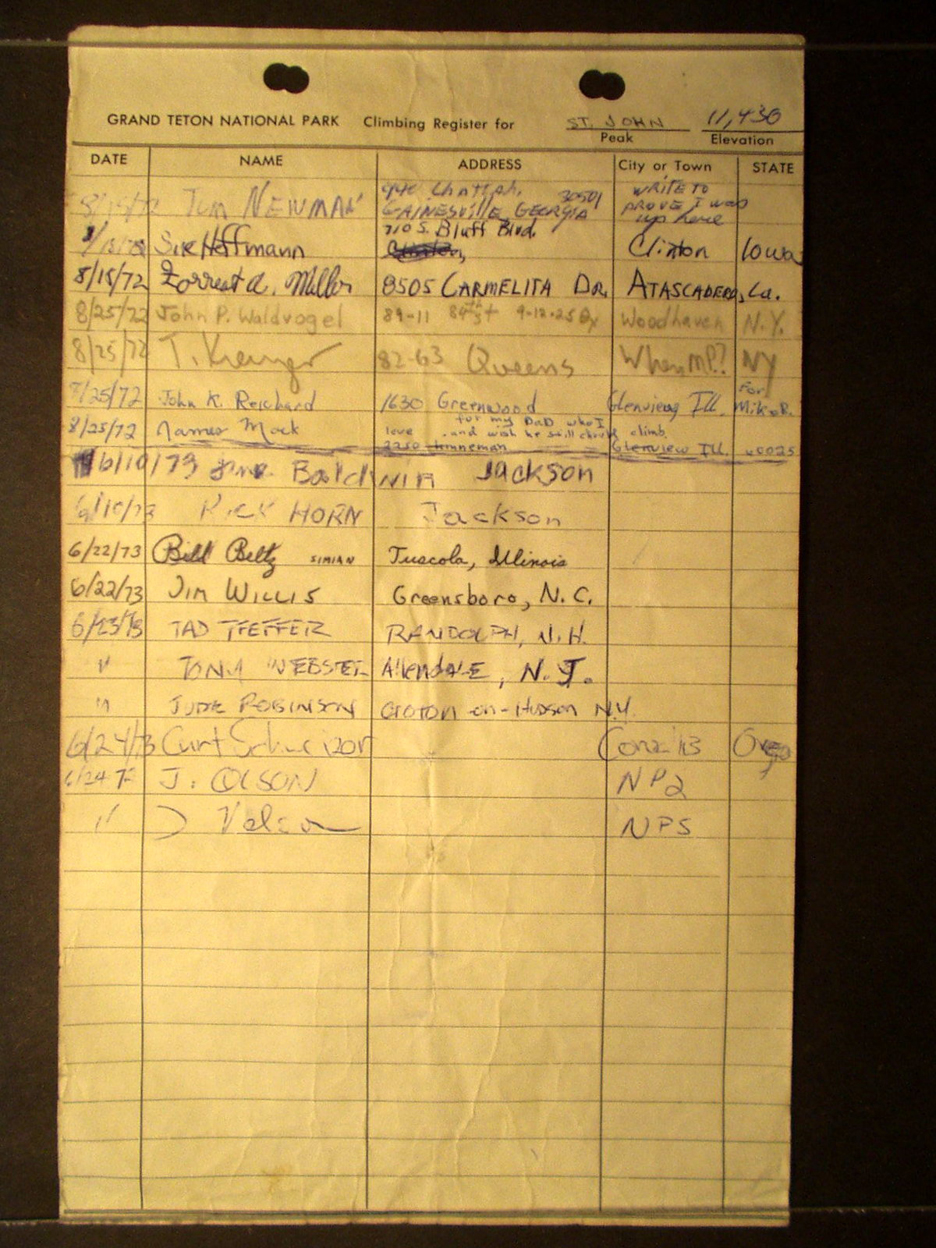 GRAND TETON NATIONAL PARK Climbing Register for ST. JOHN 11,430
Peak Elevation
DATE NAME ADDRESS City or Town STATE
8/15/72 Jim NEWMAN 940 Chattph. GAINESVILLE, GEORGIA 30501 WRITE TO PROVE I WAS up here
Sue Hoffmann 710 S. Bluff Blvd. Clinton Iowa
8/15/72 Forrest A. Miller 8505 CARMELITA DR. ATASCADERO, Ca.
8/25/72 John P. Waldvogel 89-11 Woodhaven N.Y.
8/25/72 T. 82-63 Queens NY
8/25/72 John K. Reichard 1630 Greenwood Glenview Ill. For Mike R.
8/25/72 James Mock for my DAD who I love and wish he still could climb.
2250 Glenview Ill. 60025
6/10/73 Baldwin Jackson
6/10/73 RICK HORN Jackson
6/22/73 Bill Beltz SIMIAN Tuscola, Illinois
6/22/73 JIM WILLIS Greensboro, N.C.
6/23/73 TAD PFEFFER RANDOLPH, N.H.
" TONY WEBSTER Allendale, N.J.
" JUDE ROBINSON CROTON-on-Hudson N.Y.
6/24/73 Curt
J. OLSON
" NPS